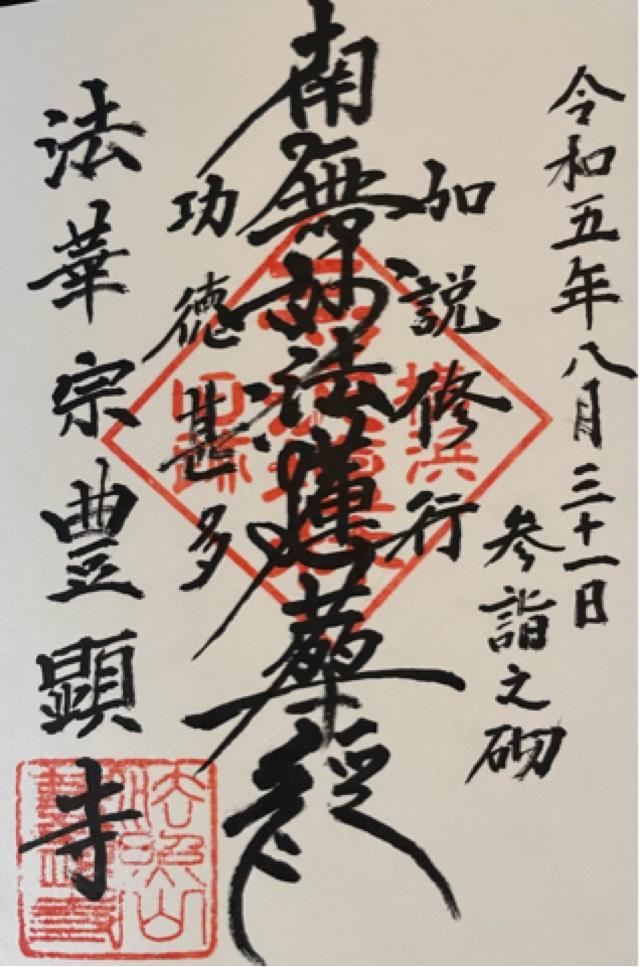 令和五年八月三十一日
参詣之砌
如説修行
南無妙法蓮華経
功徳甚多
法華宗豊顕寺
横浜
旧跡
法照山
豊顕寺